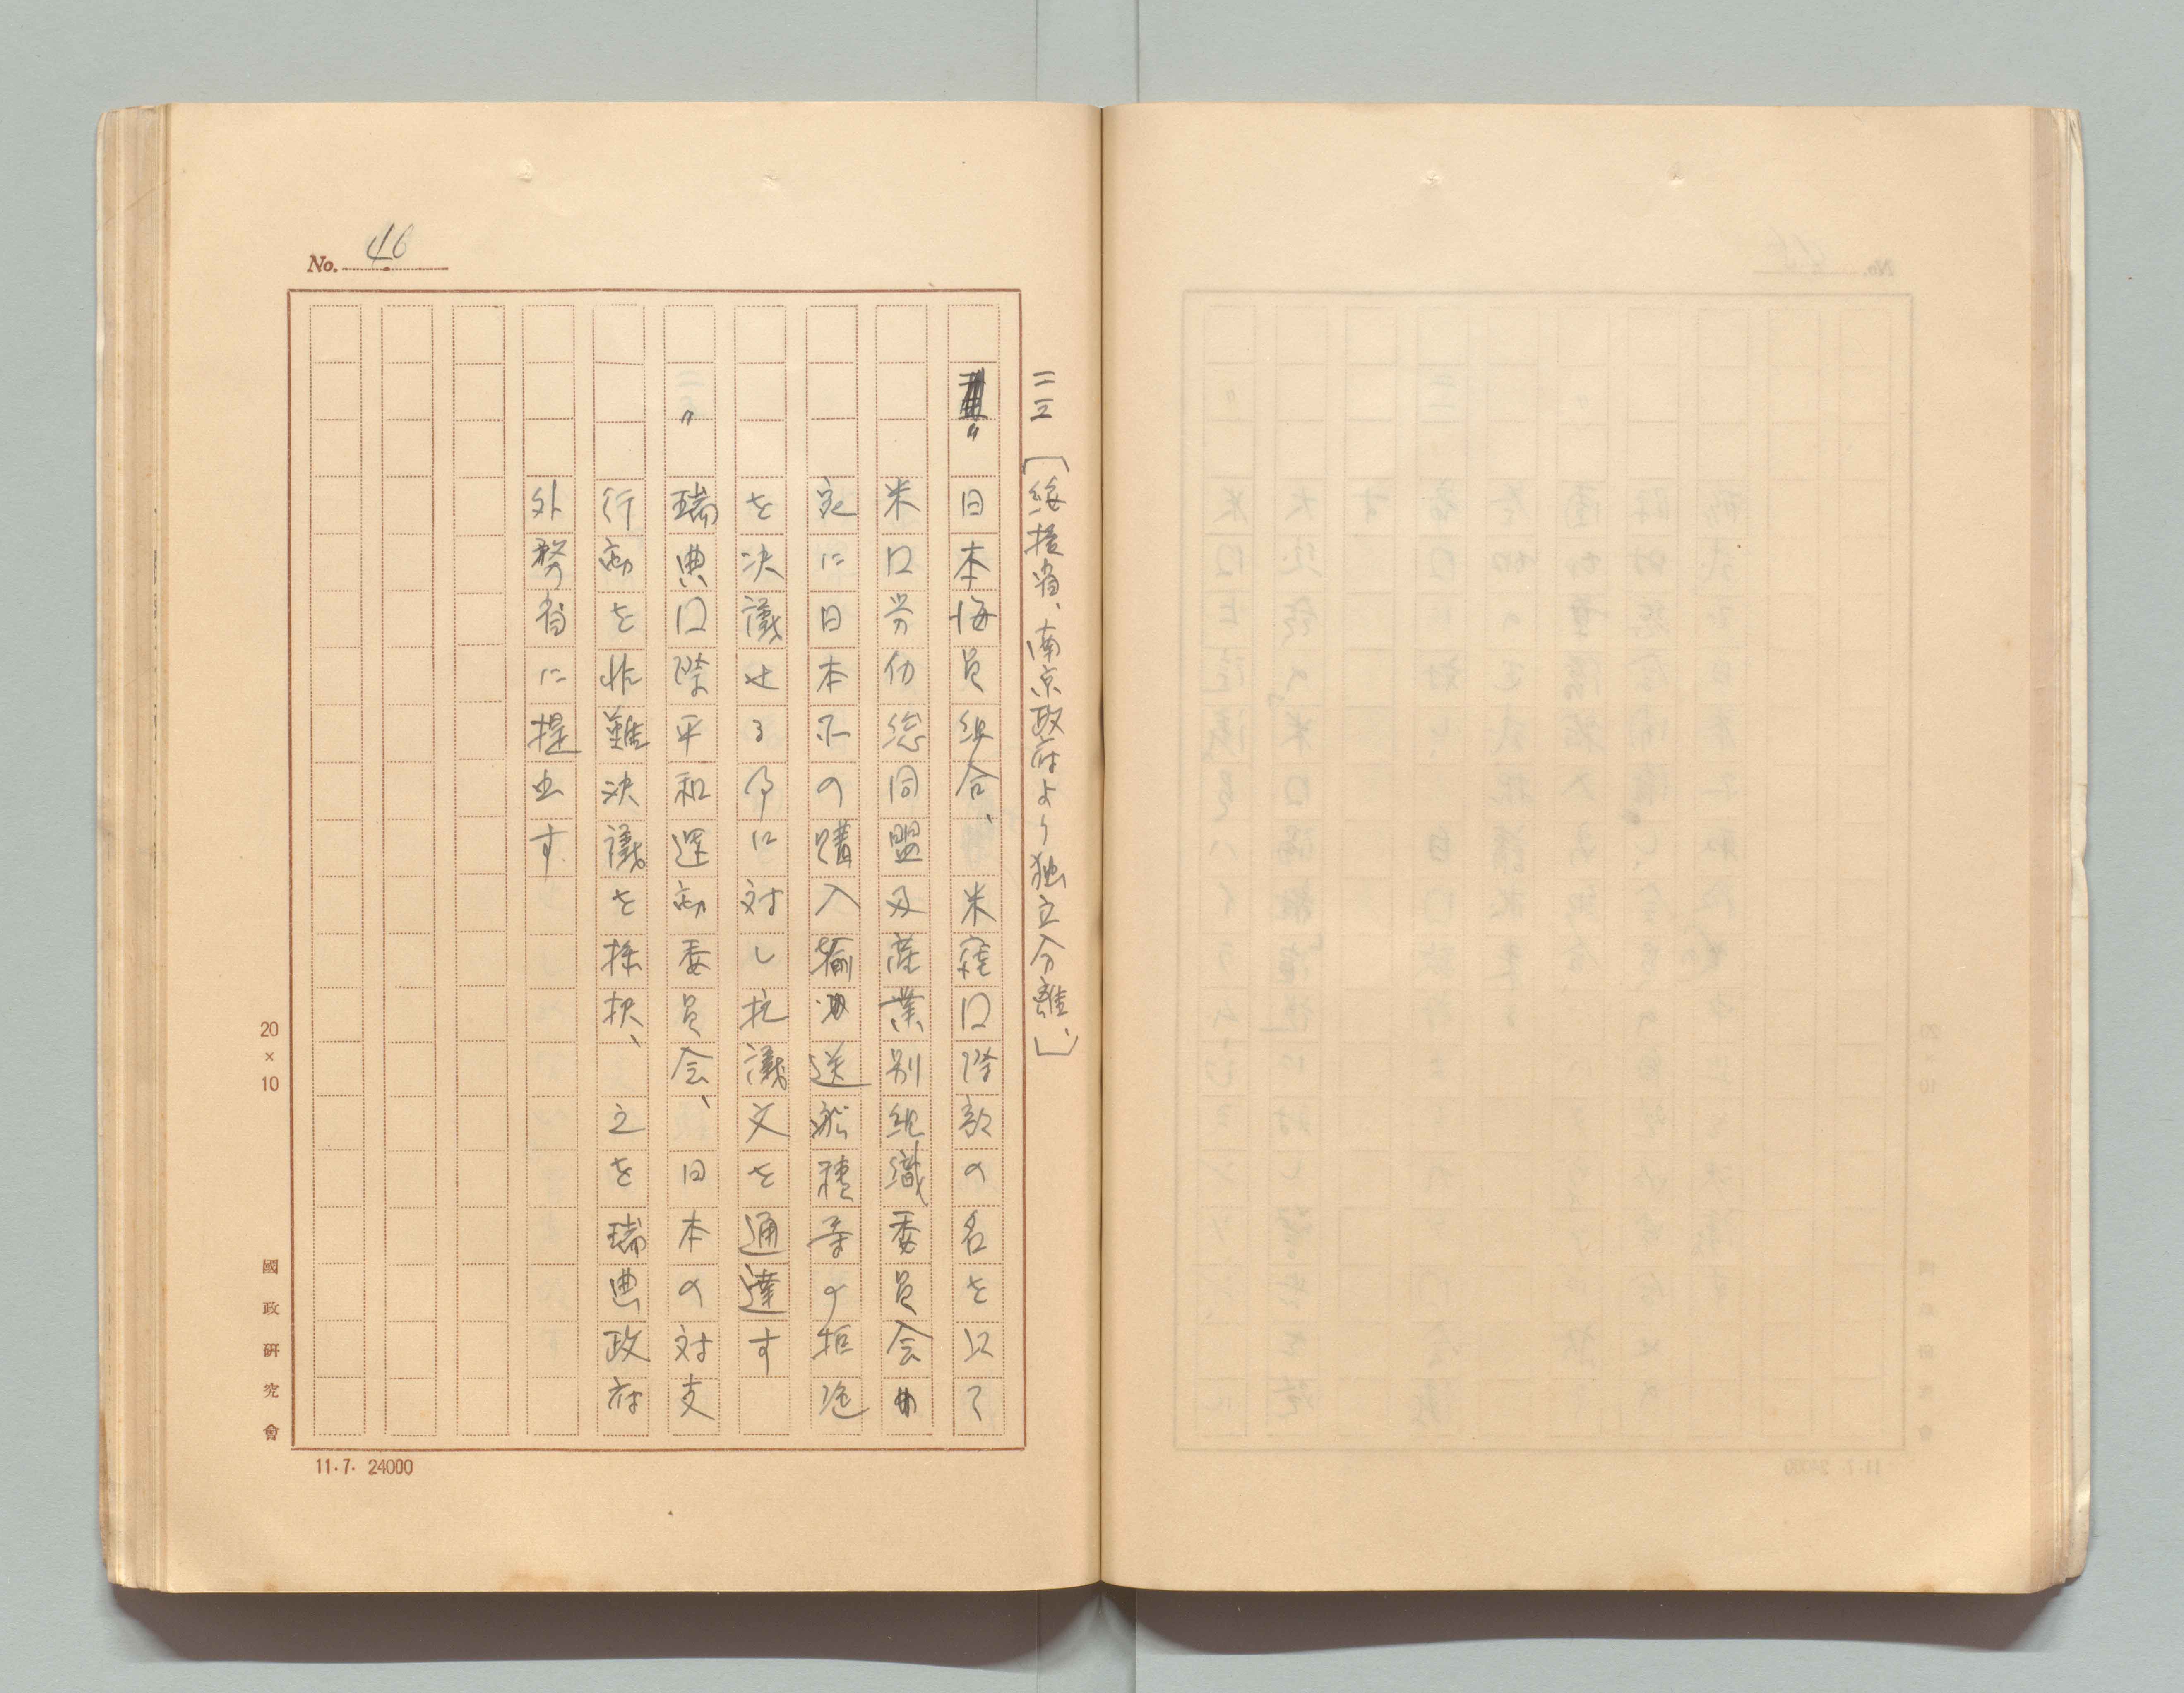 No. 46
二三 [綏接省、南京政府より独立分離、]
〃 日本海員組合、米窪口際部の名を以て
米口労仂総同盟及産業別組織委員会
宛に日本品の購入輸送船積等の拒絶
を決議せる事に対し抗議文を通達す
〃 瑞典口際平和運動委員会、日本の対支
行動を非難決議を採択、之を瑞典政府
外務省に提出す
20×10
國政研究會
11.7. 24000